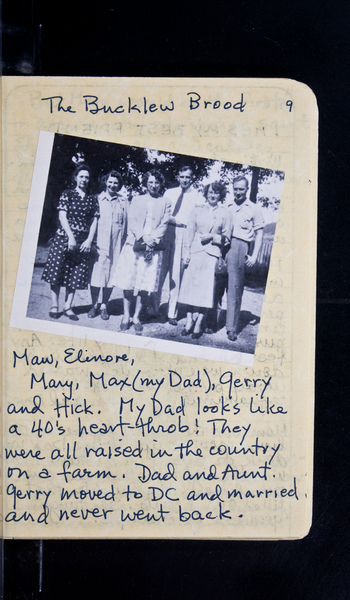 The Bucklew Brood 9
Maw, Elinore,
Mary, Max (my Dad), Gerry
and Hick. My Dad looks like
a 40's heart-throb! They
were all raised in the country
on a farm. Dad and Aunt.
Gerry moved to DC and married.
and never went back.